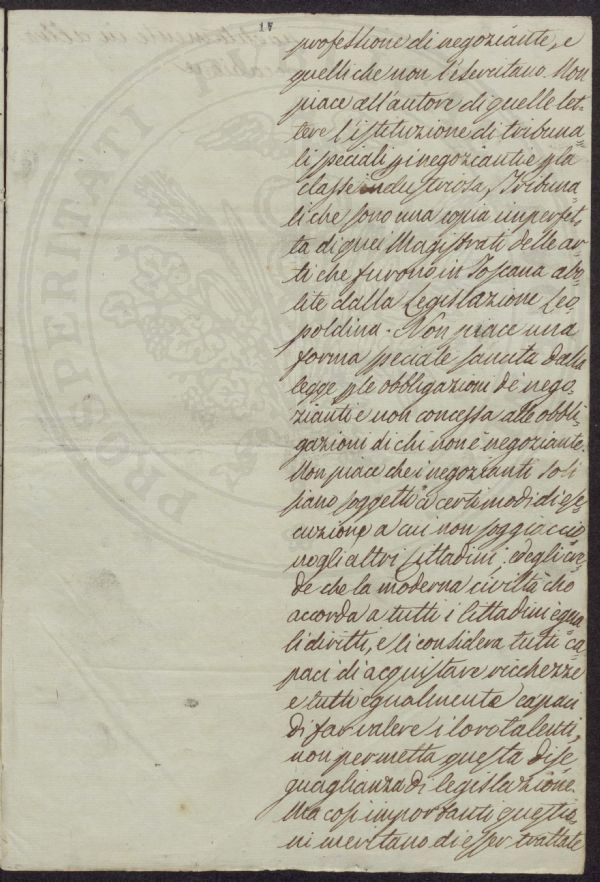 professione di negoziante, e
quelli che non l'esercitano. Non
piace all'autore di quelle let-
tere l'istituzione di tribuna=
li speciali pi negozianti e pla
classe industriosa, Tribuna=
li che sono una copia imperfet=
ta di quei Magistrati delle ar=
ti che furono in Toscana abo=
lite dalla Legislazione Leo=
poldina. Non piace una
forma speciale sancita dalla
legge p le obbligazioni de' nego=
zianti e non concessa alle obbli=
gazioni di chi non è negoziante.
Non piace che i negozianti soli
siano soggetti a certi modi di ese=
cuzione a cui non soggiaccio=
no gli altri Cittadini; ed egli cre=
de che la moderna civiltà che
accorda a tutti i Cittadini egua=
li diritti, e li considera tutti ca=
paci di acquistare ricchezze
e tutti egualmente capaci
di far valere i loro talenti,
non permetta questa dise=
guaglianza di legislazione.
Ma così importanti questio=
ni meritano di esser trattate
PROSPERITATI